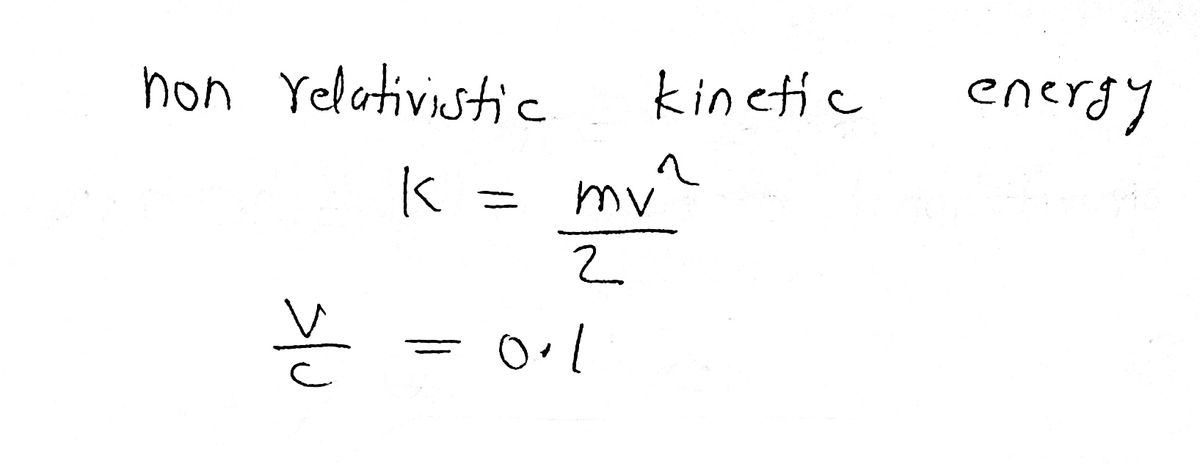 non relativistic kinetic energy
K = mv²/2
v/c = 0.1